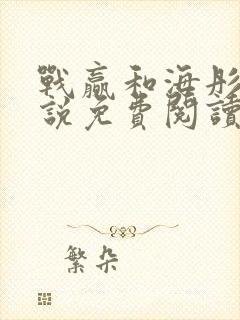 戰贏和海彤
說免費閱讀
繁朵